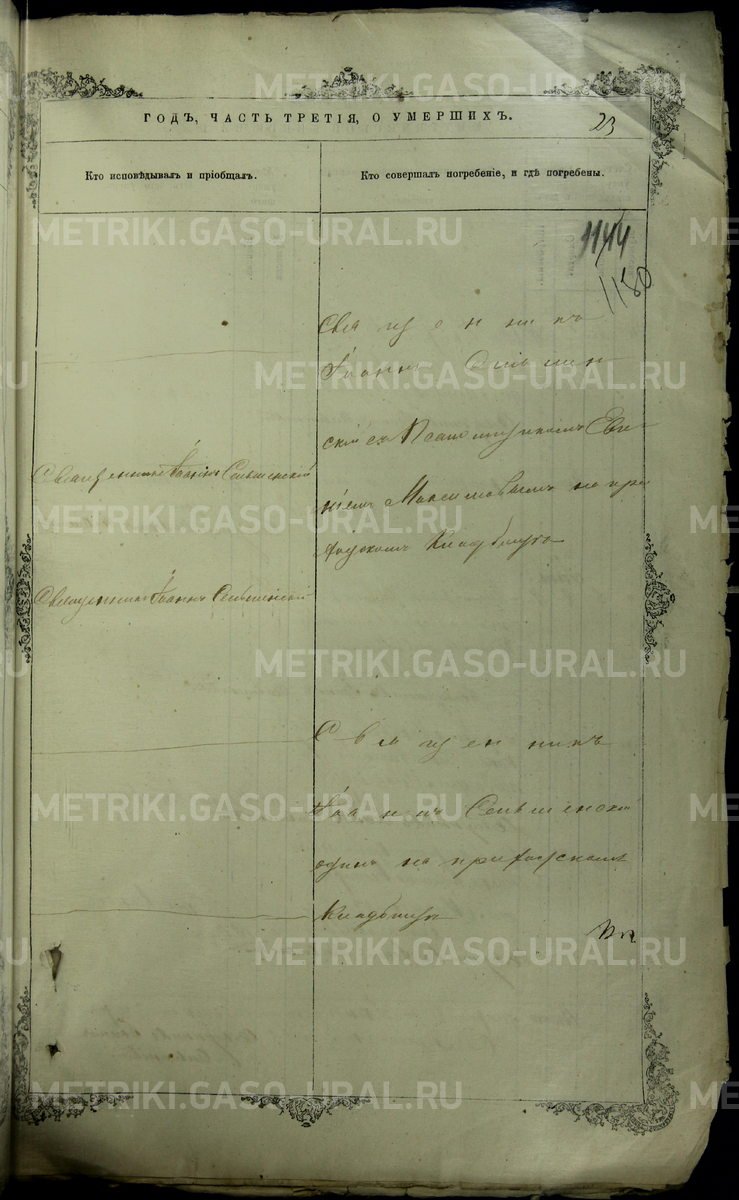 ГОДЪ, ЧАСТЬ ТРЕТІЯ, О УМЕРШИХЪ.
23
Кто исповѣдывалъ и пріобщалъ.
Кто совершалъ погребеніе, и гдѣ погребены.
1144
1180
Священникъ
Іоаннъ
скій съ Псаломщикомъ Евге-
ніемъ Максимовымъ на при
ходскомъ Кладбищѣ
Священникъ Іоаннъ
Священникъ Іоаннъ
Священникъ
Іоаннъ
одинъ на приходскомъ
Кладбищѣ
METRIKI.GASO-URAL.RU